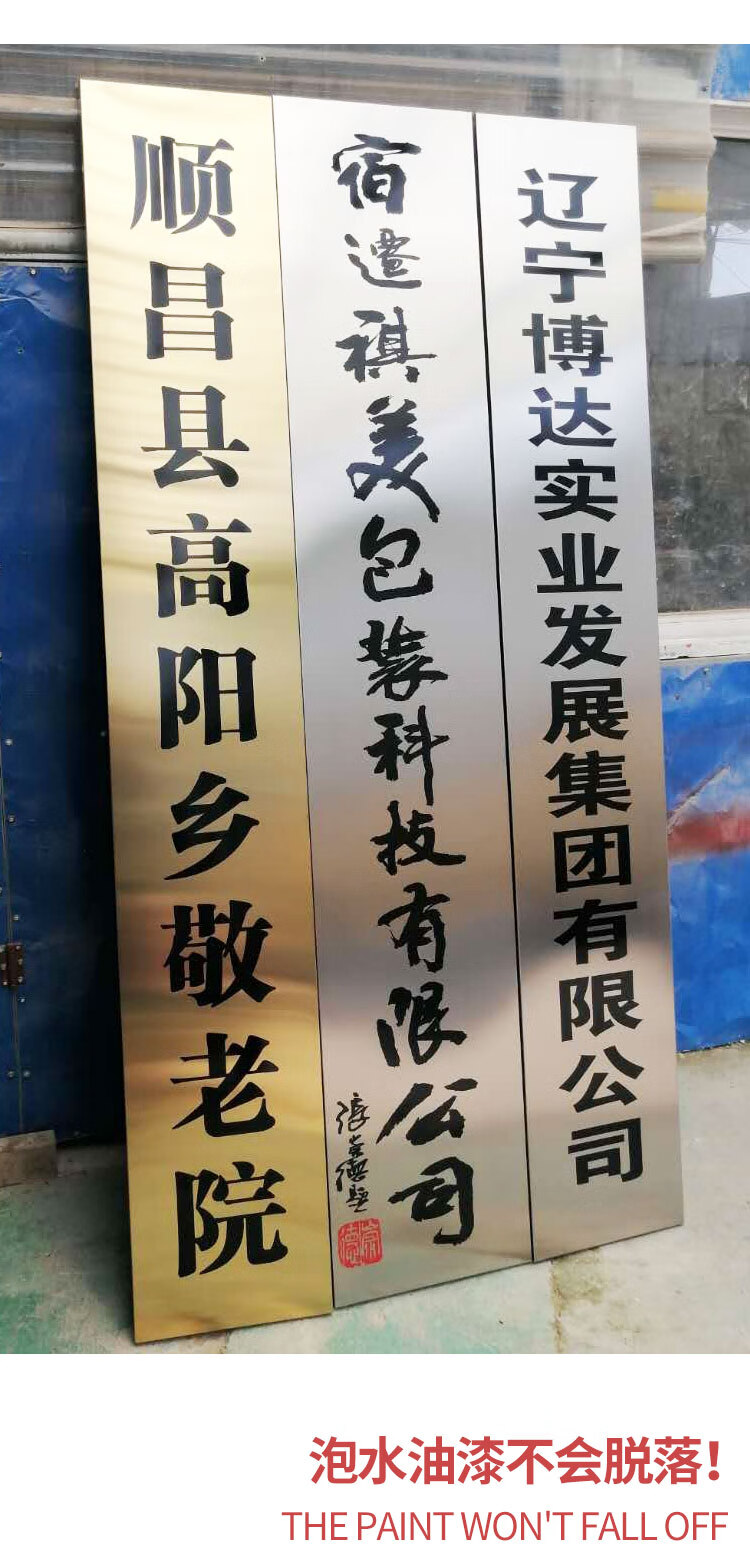 顺昌县高阳乡敬老院
宿迁祺美包装科技有限公司
辽宁博达实业发展集团有限公司
泡水油漆不会脱落!
THE PAINT WON'T FALL OFF